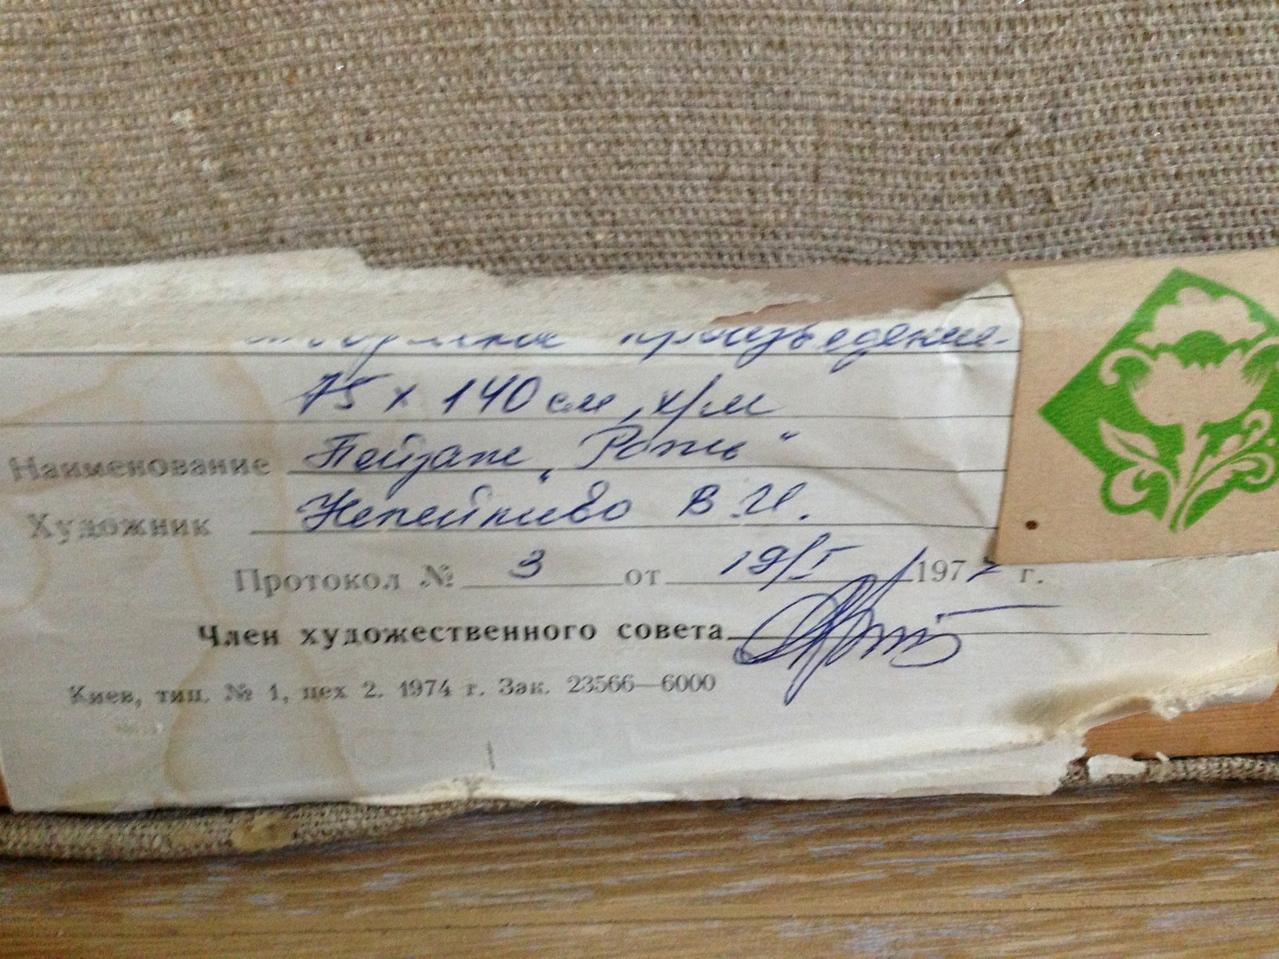 произведение
75 х 140 см, х/м
Наименование Пейзаж „Рожь"
Художник Непейпиво В.И.
Протокол № 3 от 19/I 1977 г.
Член художественного совета
Киев, тип. № 1, цех 2. 1974 г. Зак. 23566—6000